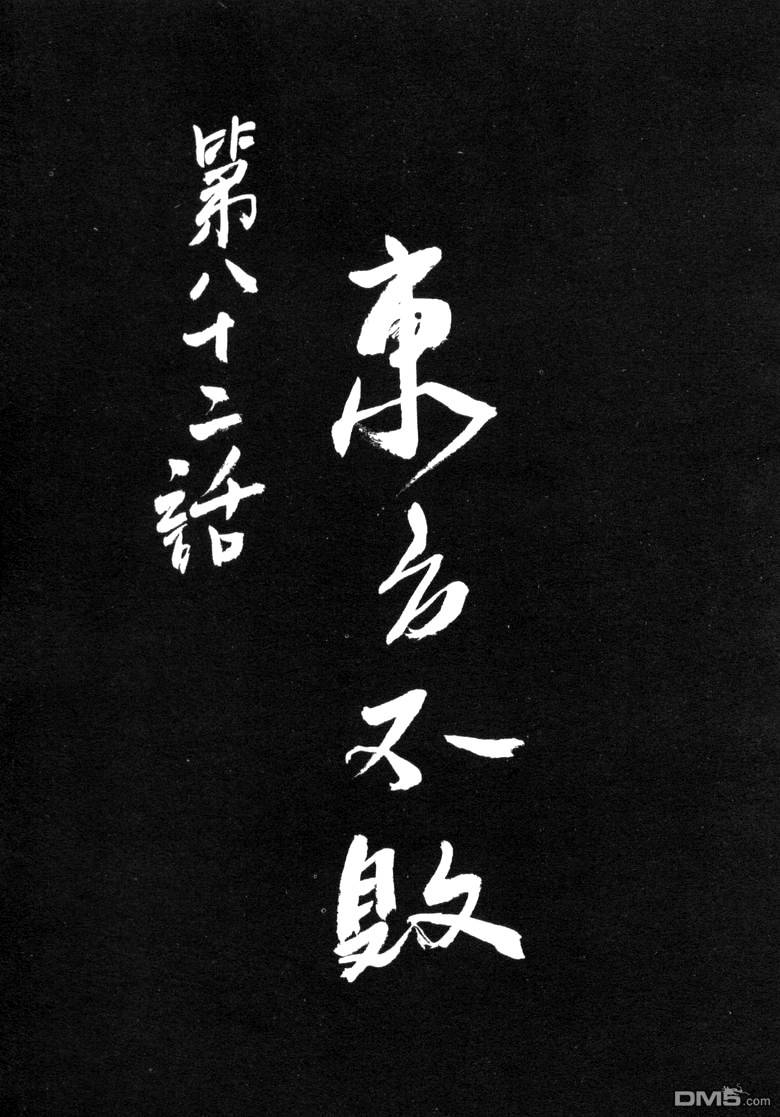 東方不敗
第八十二話
DM5.com